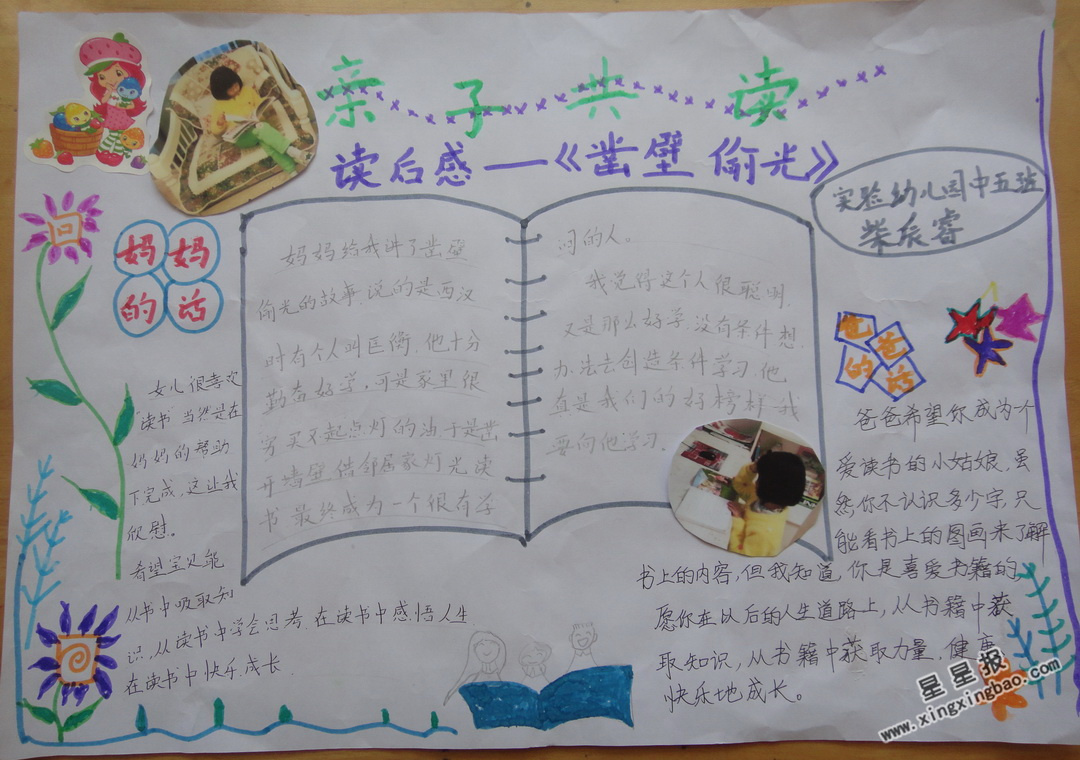 亲子共读
读后感——《凿壁偷光》
实验幼儿园中五班
柴辰睿
妈妈
的话
女儿很喜欢
读书 当然是在
妈妈的帮助
下完成,这让我
欣慰。
希望宝贝能
从书中吸取知
识,从读书中学会思考.在读书中感悟人生
在读书中快乐成长
妈妈给我讲了凿壁
偷光的故事.说的是西汉
时有个人叫匡衡.他十分
勤奋好学,可是家里很
穷买不起点灯的油.于是凿
开墙壁.借邻居家灯光读
书.最终成为一个很有学
问的人。
我觉得这个人很聪明.
又是那么好学.没有条件想
办法去创造条件学习.他
真是我们的好榜样.我
要向他学习.
爸爸
的话
爸爸希望你成为个
爱读书的小姑娘,虽
然,你不认识多少字,只
能看书上的图画来了解
书上的内容,但我知道,你是喜爱书籍的,
愿你在以后的人生道路上,从书籍中获
取知识,从书籍中获取力量,健康
快乐地成长。
星星报
www.xingxingbao.com